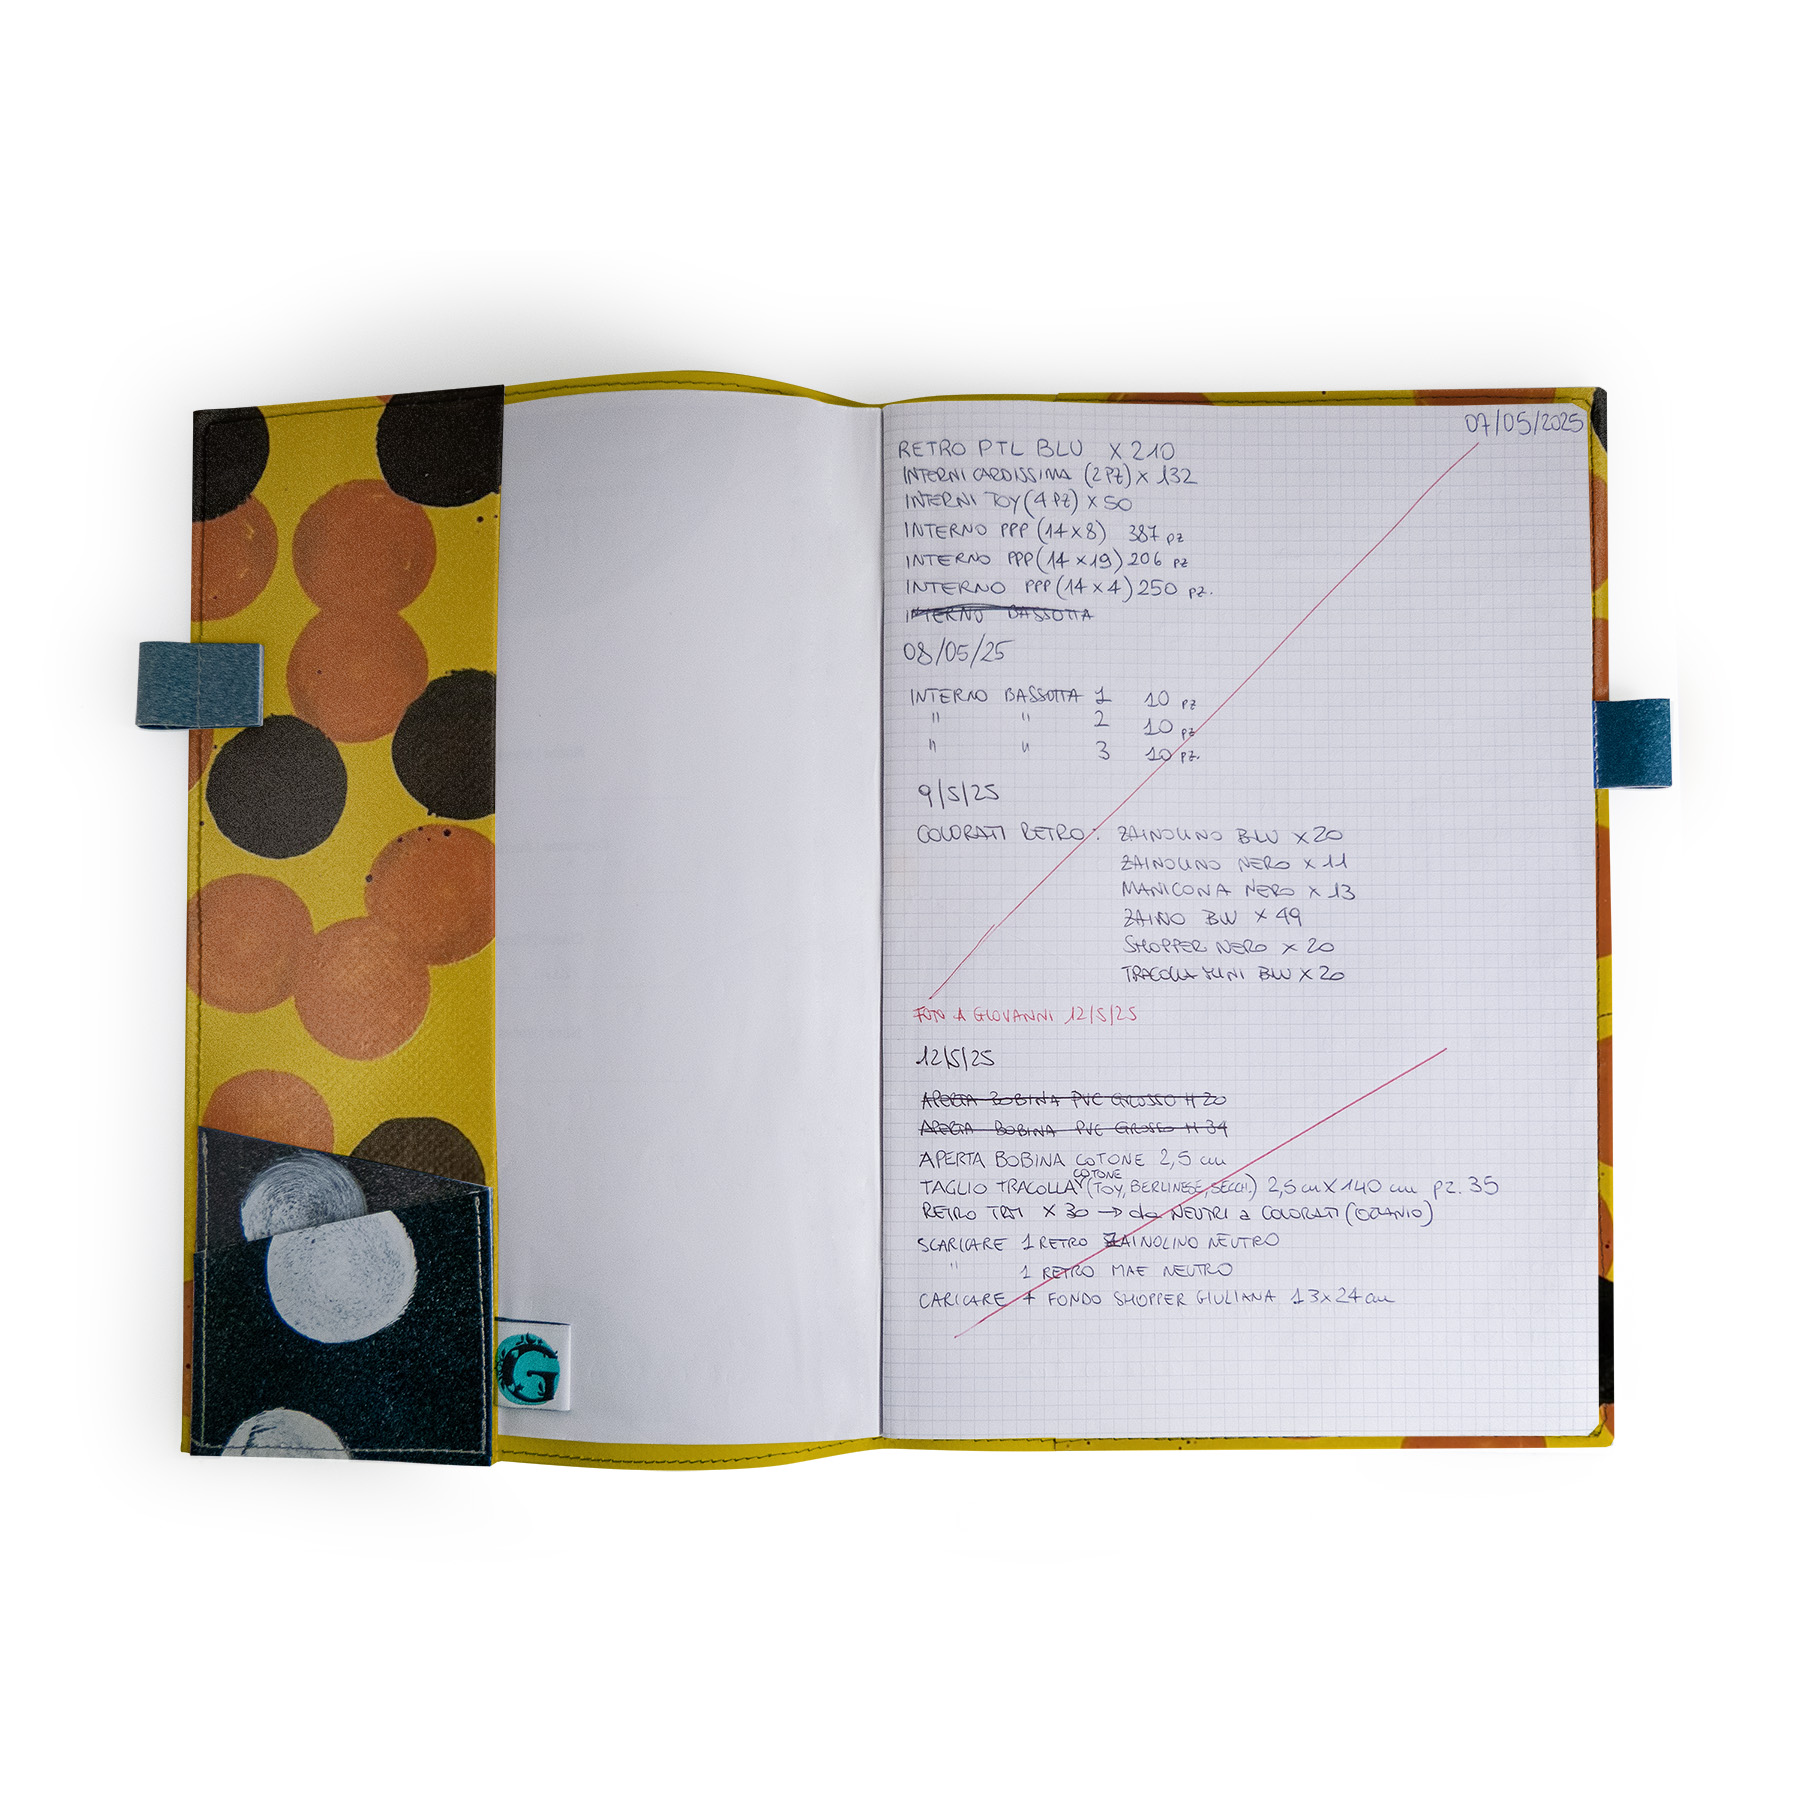 07/05/2025
RETRO PTL BLU X 210
INTERNI CARDISSIMA (2 PZ) X 132
INTERNI TOY (4 PZ) X 50
INTERNO PPP (14 X 8) 387 PZ
INTERNO PPP (14 X 19) 206 PZ
INTERNO PPP (14 X 4) 250 PZ.
INTERNO BASSOTTA
08/05/25
INTERNO BASSOTTA 1 10 PZ
" " 2 10 PZ
" " 3 10 PZ.
9/5/25
COLORATI RETRO: ZAINOLINO BLU X 20
ZAINOLINO NERO X 11
MANICONA NERO X 13
ZAINO BLU X 49
SHOPPER NERO X 20
TRACOLLA BLU X 20
FOTO A GIOVANNI 12/5/25
12/5/25
APERTA BOBINA PVC GROSSO H 20
APERTA BOBINA PVC GROSSO H 34
APERTA BOBINA COTONE 2,5 cm
TAGLIO TRACOLLA COTONE (TOY, BERLINESE, SECCH.) 2,5 cm X 140 cm PZ. 35
RETRO X 30 → da NEUTRI a COLORATI (OTTANIO)
SCARICARE 1 RETRO ZAINOLINO NEUTRO
" 1 RETRO MAE NEUTRO
CARICARE 1 FONDO SHOPPER GIULIANA 13 x 24 cm
G